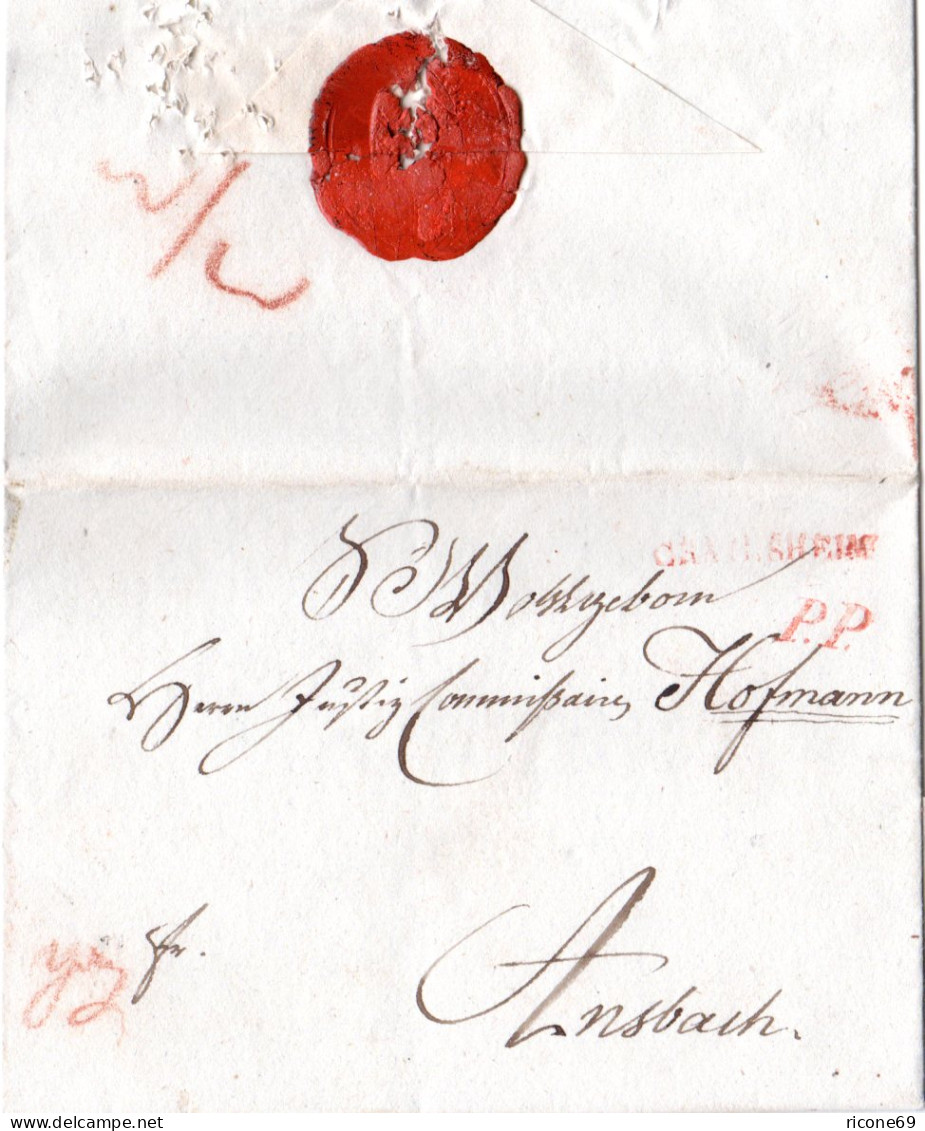 CRAILSHEIM
P.P.
Wohlgeborn
Herrn Justiz Commißaire Hofmann
fr.
Ansbach.
delcampe.net
ricone69